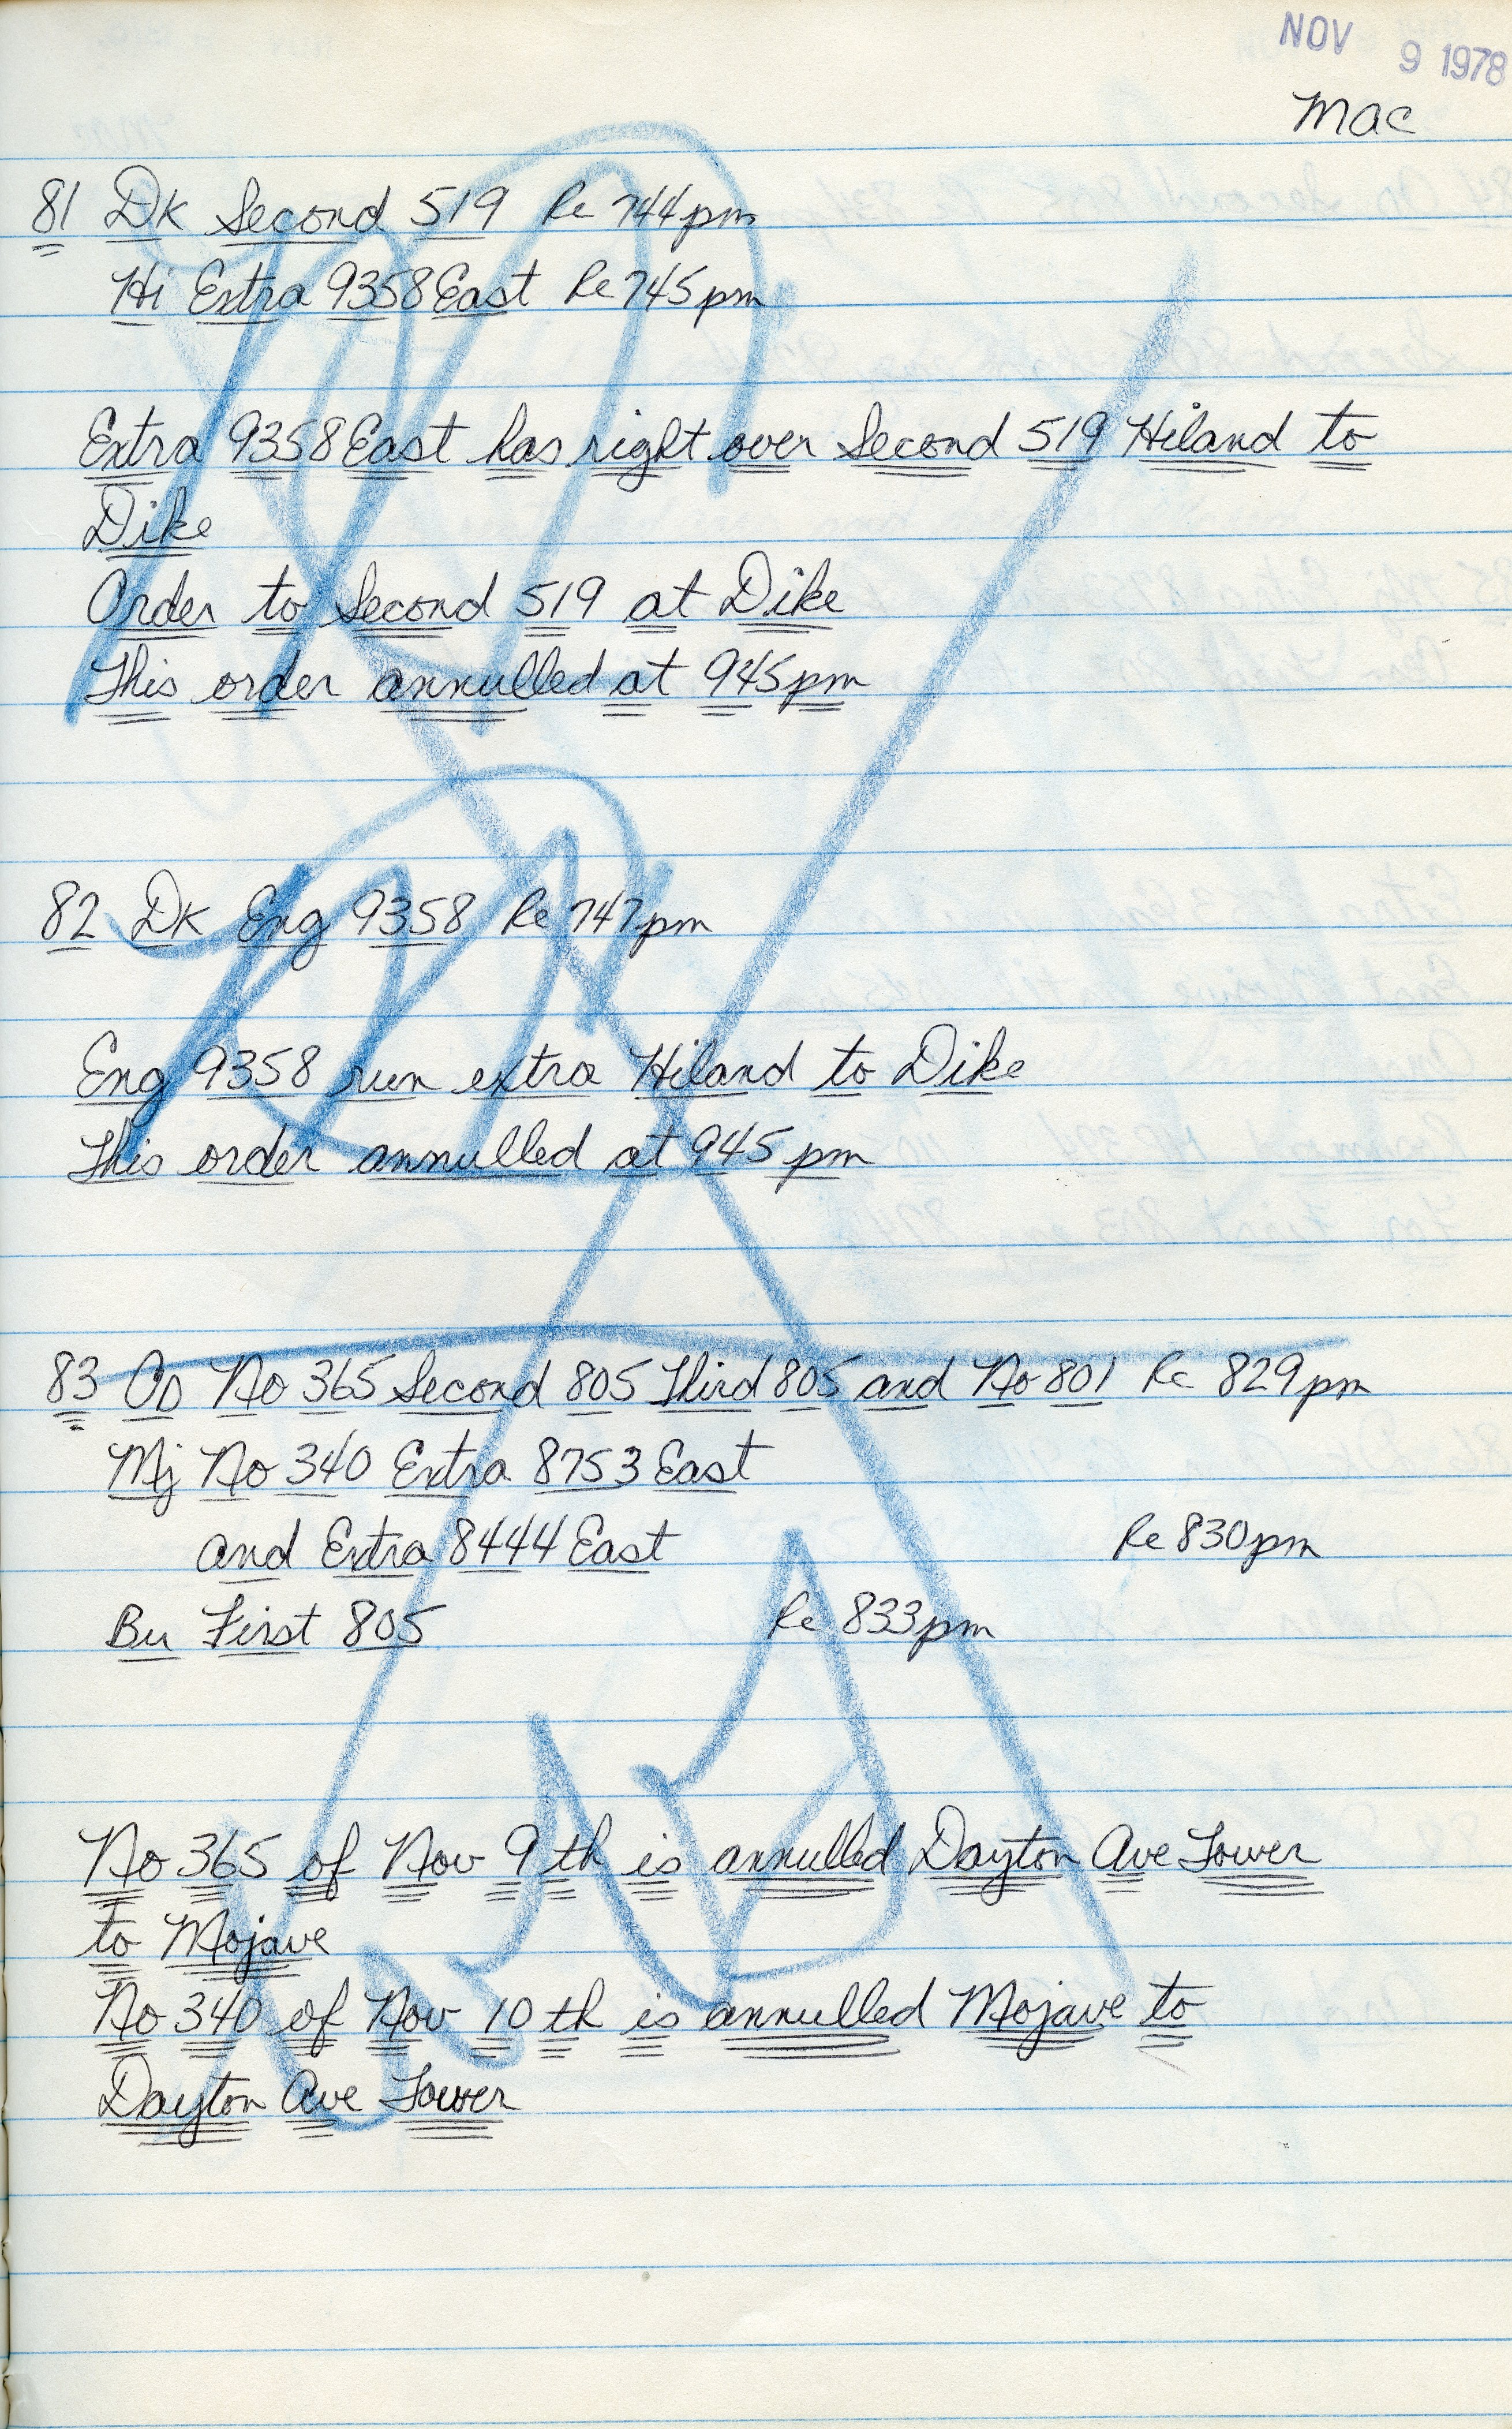 NOV 9 1978
Mac
81 Dk Second 519 Re 744pm
Hi Extra 9358 East Re 745pm
Extra 9358 East has right over Second 519 Hiland to
Dike
Order to Second 519 at Dike
This order annulled at 945pm
82 Dk Eng 9358 Re 747pm
Eng 9358 run extra Hiland to Dike
This order annulled at 945 pm
83 No 365 Second 805 Third 805 and No 801 Re 829pm
Mj No 340 Extra 8753 East
and Extra 8444 East Re 830pm
Bu First 805 Re 833pm
No 365 of Nov 9 th is annulled Dayton Ave Tower
to Mojave
No 340 of Nov 10 th is annulled Mojave to
Dayton Ave Tower